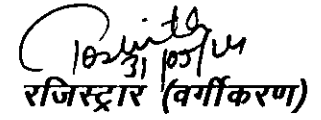 31/05/14
रजिस्ट्रार (वर्गीकरण)